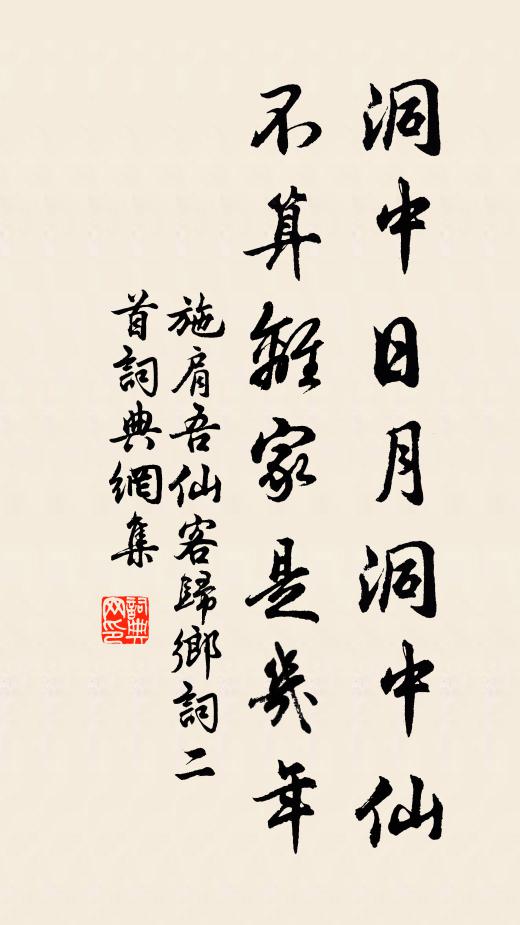 洞中日月洞中仙
不算離家是幾年
施肩吾仙客歸鄉詞二
首詞典網集
詞典
网印